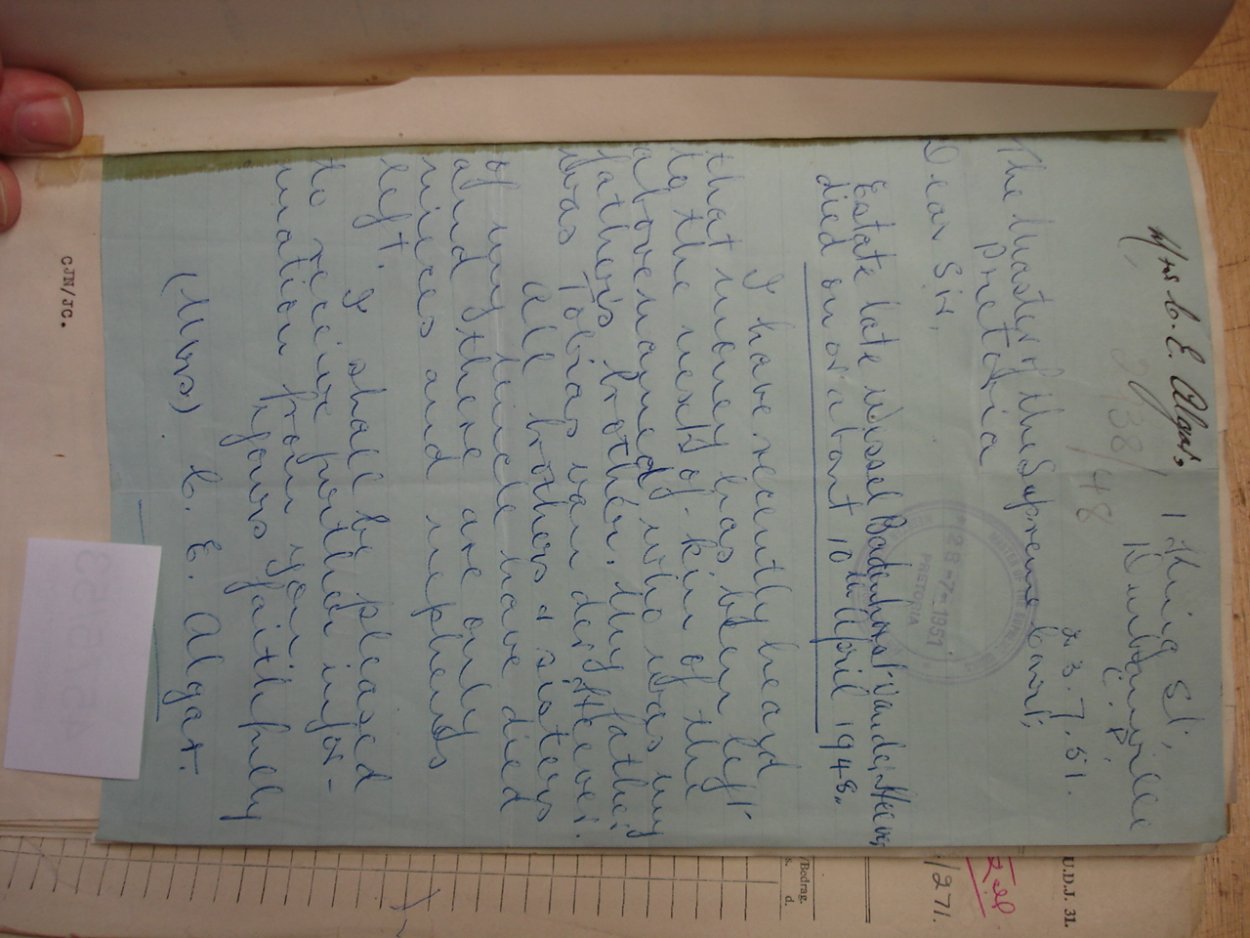 Mrs C. E. Algar,
1 King St.,
Humbyville
C.P.
3138/48
23.7.51.
The Master of the Supreme Court,
Pretoria
29-7-1951
PRETORIA
Dear Sir,
Estate late Wessel Badenhorst Van der Heever,
died on or about 10th April 1948.
I have recently heard
that money has been left
to the next-of-kin of the
abovenamed who was my
father's brother. My father
was Tobias van der Heever.
All brothers & sisters
of my uncle have died
and there are only
nieces and nephews
left.
I shall be pleased
to receive further infor-
mation from you.
Yours faithfully
(Mrs) C. E. Algar.
CJN/JC.
U.D.J. 31.
/271.
/Bedrag.
s. d.